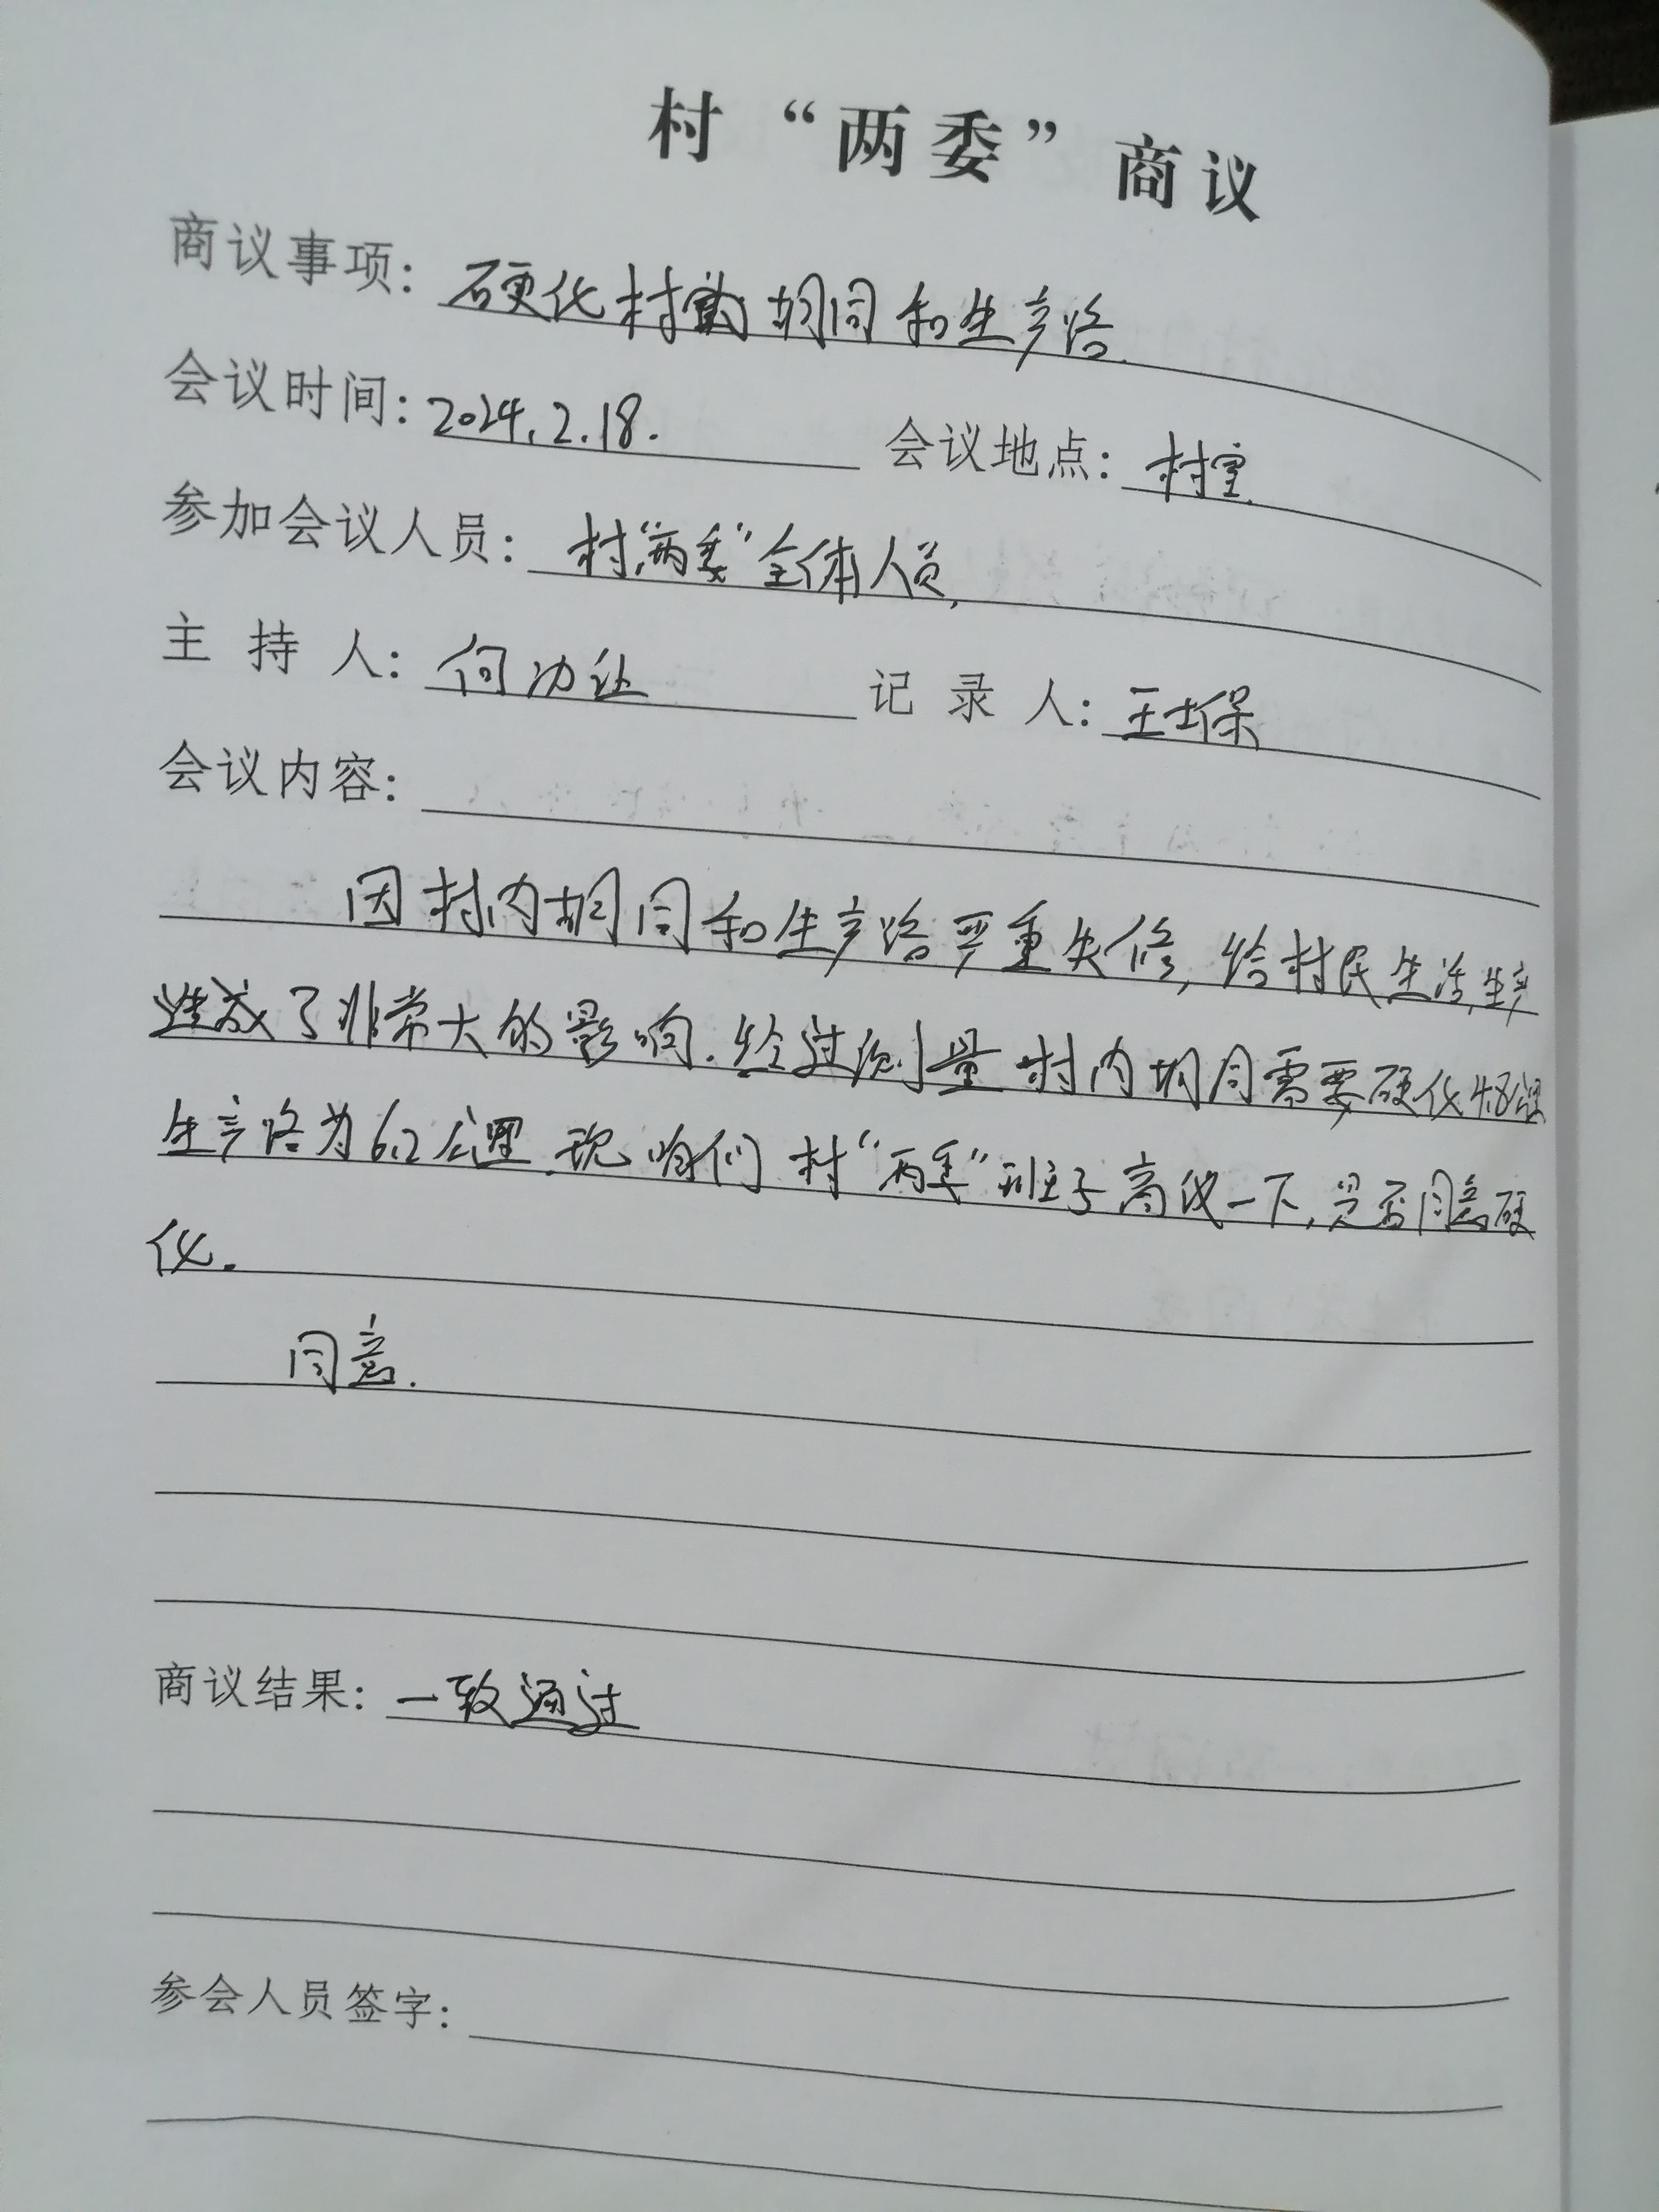 村“两委”商议
商议事项：硬化村内胡同和生产路.
会议时间：2024.2.18. 会议地点：村室.
参加会议人员：村“两委”全体人员.
主持人：何功让 记录人：王士保
会议内容：
因村内胡同和生产路严重失修,给村民生活,生产
造成了非常大的影响.经过测量村内胡同需要硬化
生产路为6.2公里.现咱们村“两委”班子商议一下,是否同意硬
化.
同意.
商议结果：一致通过
参会人员签字：